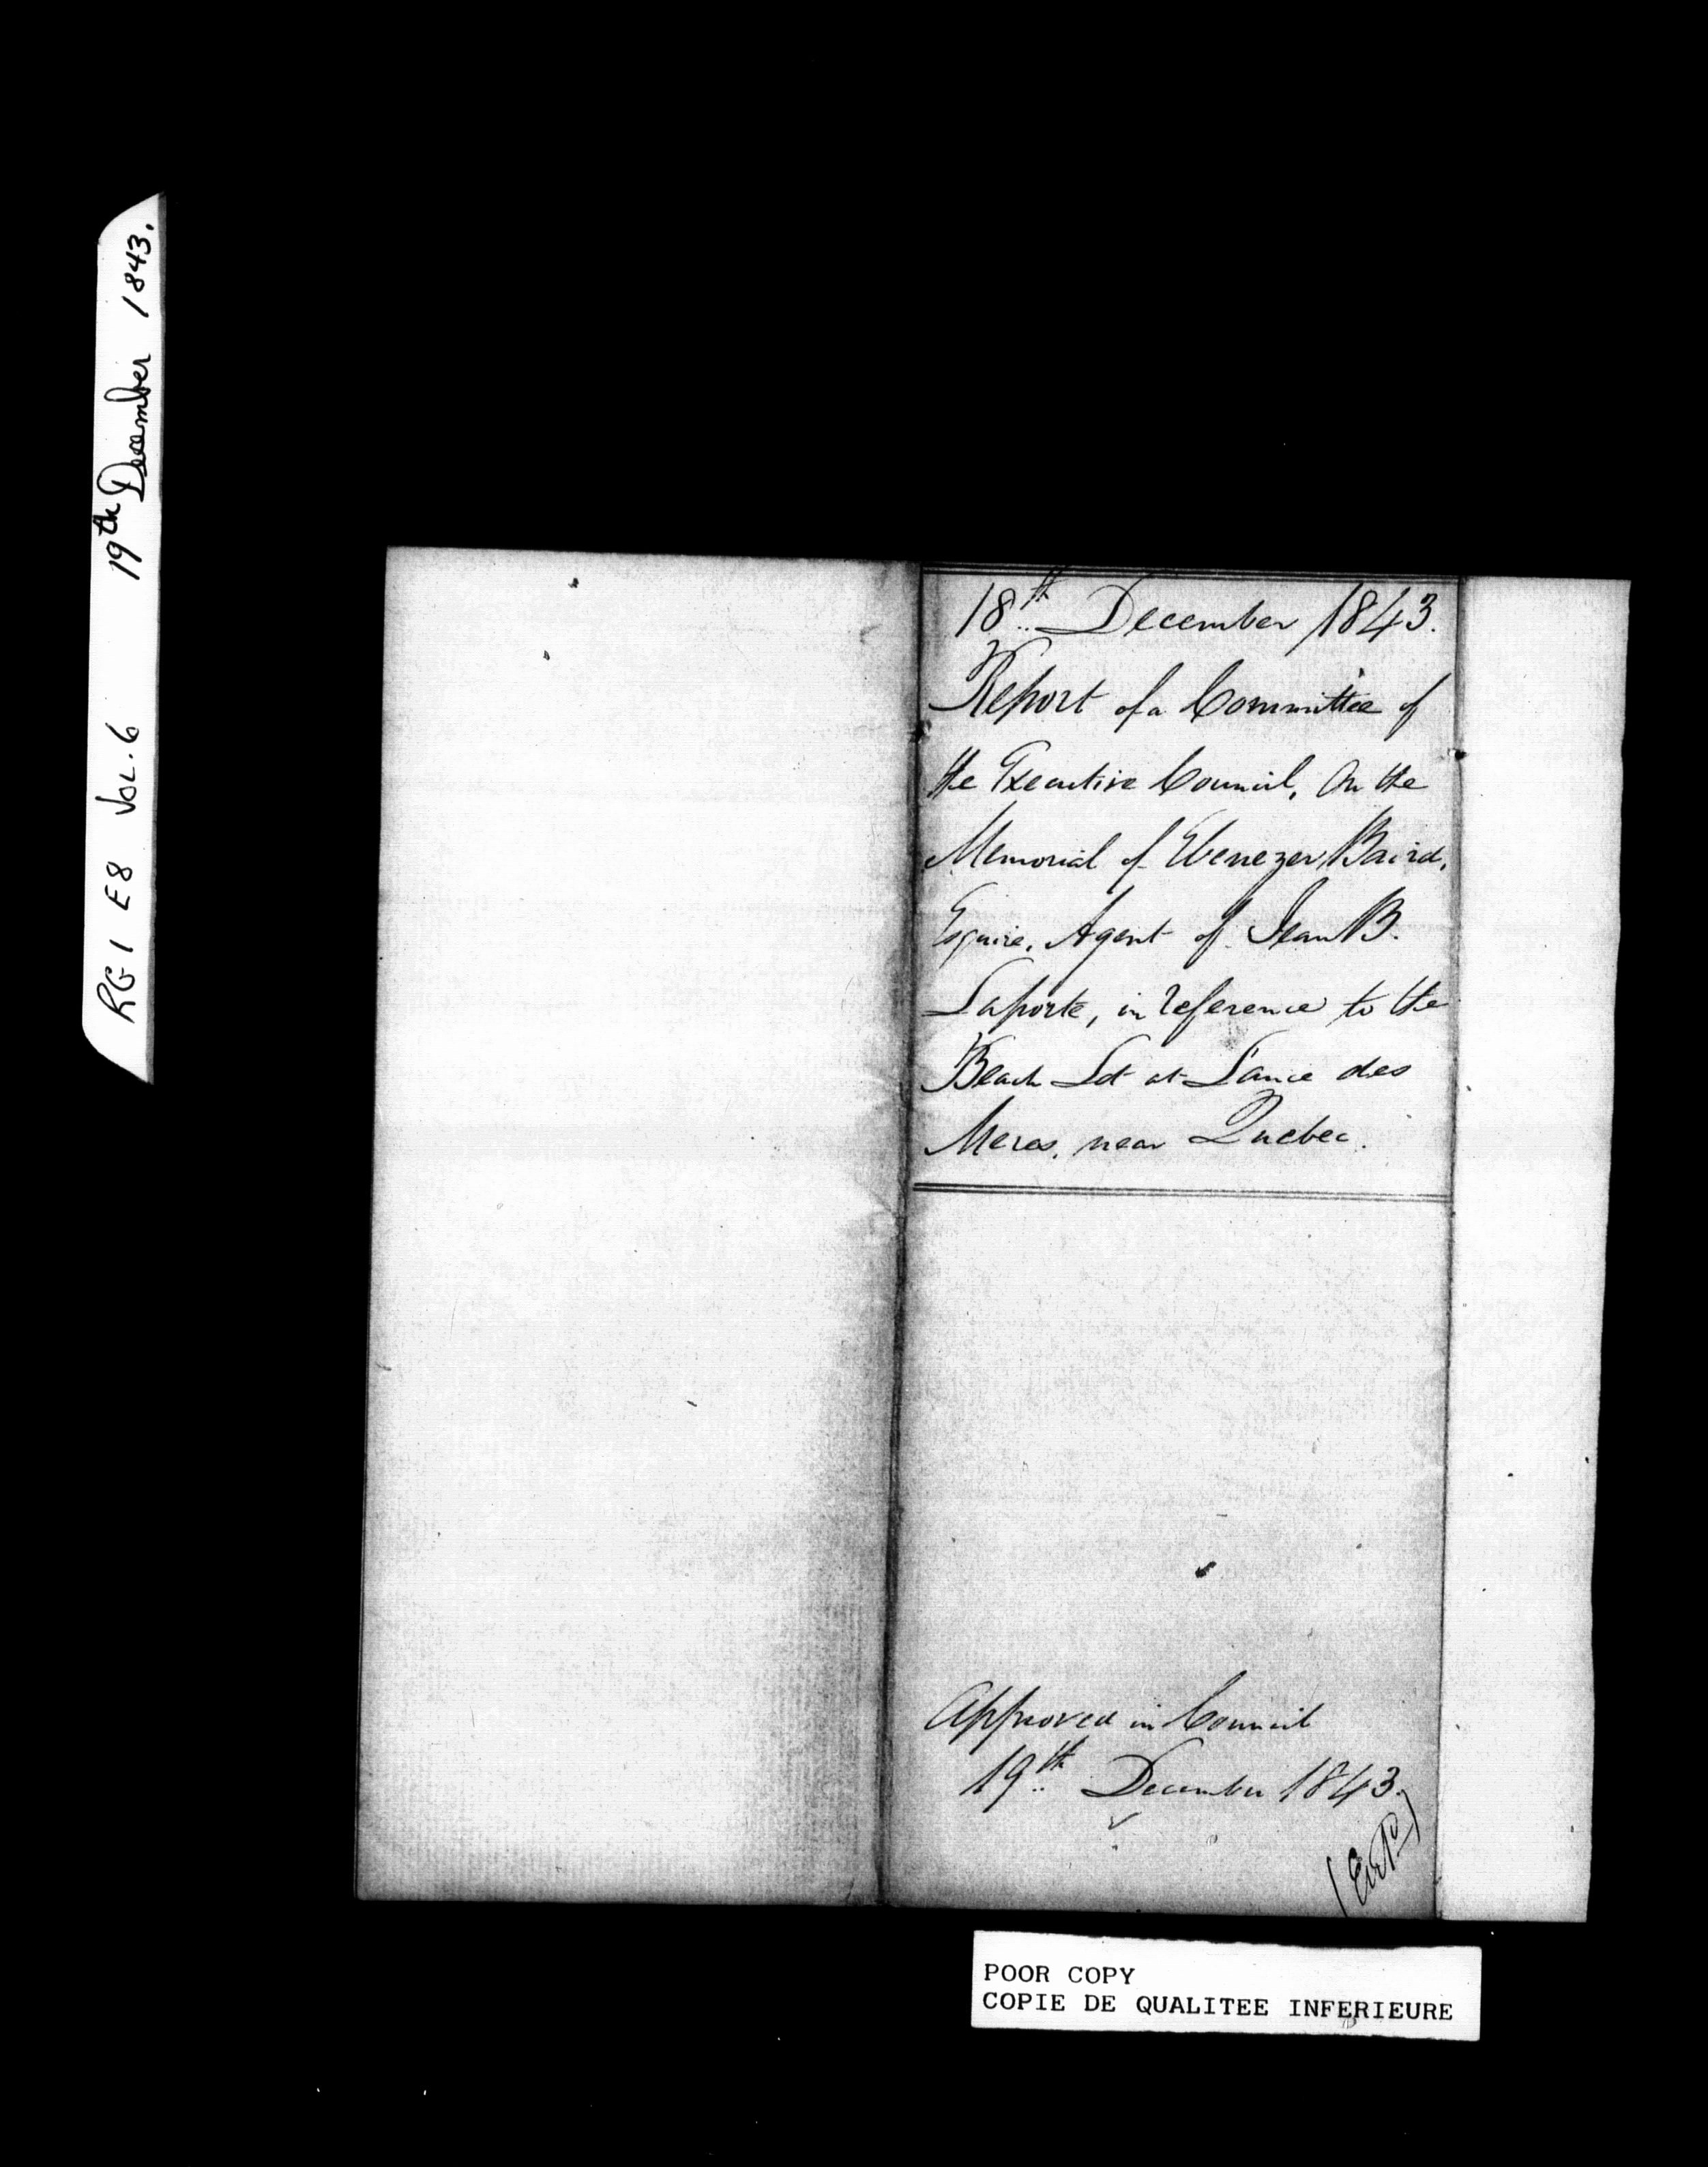 RG1 E8 VOL.6 19th December 1843.
18th December 1843.
Report of a Committee of
the Executive Council, On the
Memorial of Ebenezer Baird,
Esquire, Agent of Jean B.
Laporte, in reference to the
Beach Lot at L'ance des
Meres, near Quebec.
Approved in Council
19th December 1843.
POOR COPY
COPIE DE QUALITEE INFERIEURE